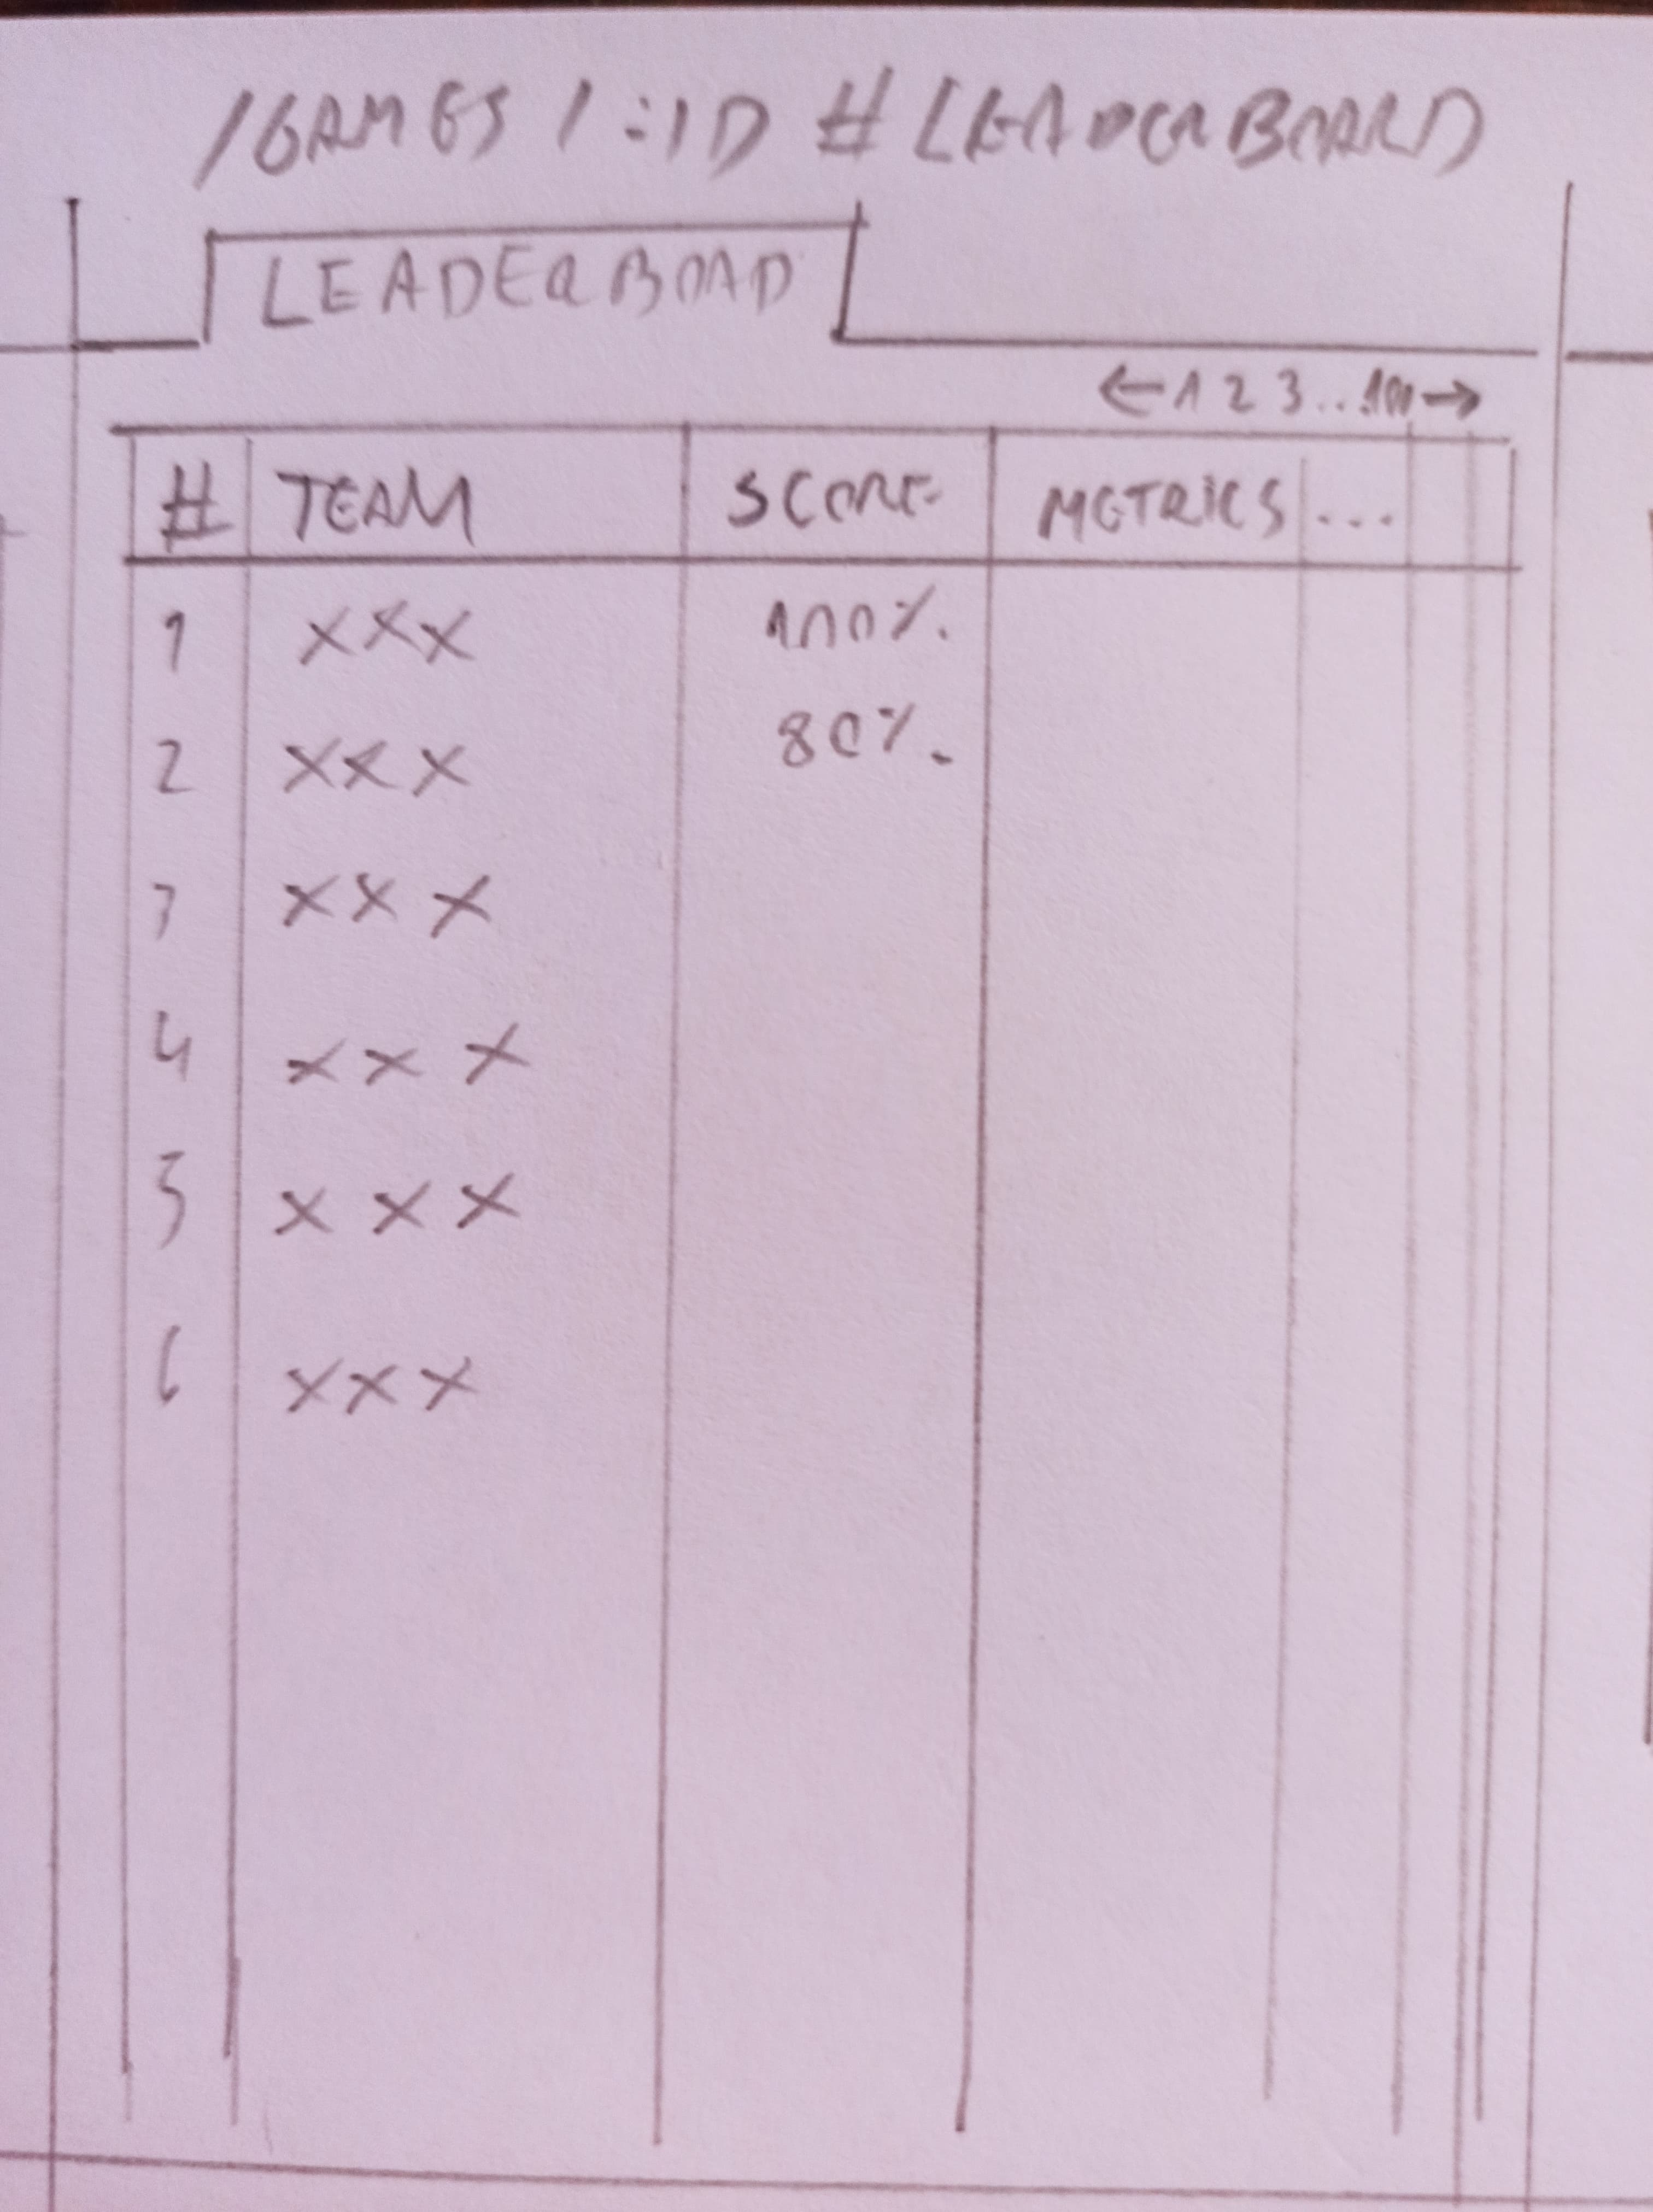 /GAMES/:ID #LEADERBOARD
LEADERBOAD
← 1 2 3 ... 100 →
# TEAM SCORE METRICS ...
1 XXX 100%.
2 XXX 80%.
3 XXX
4 XXX
5 XXX
6 XXX